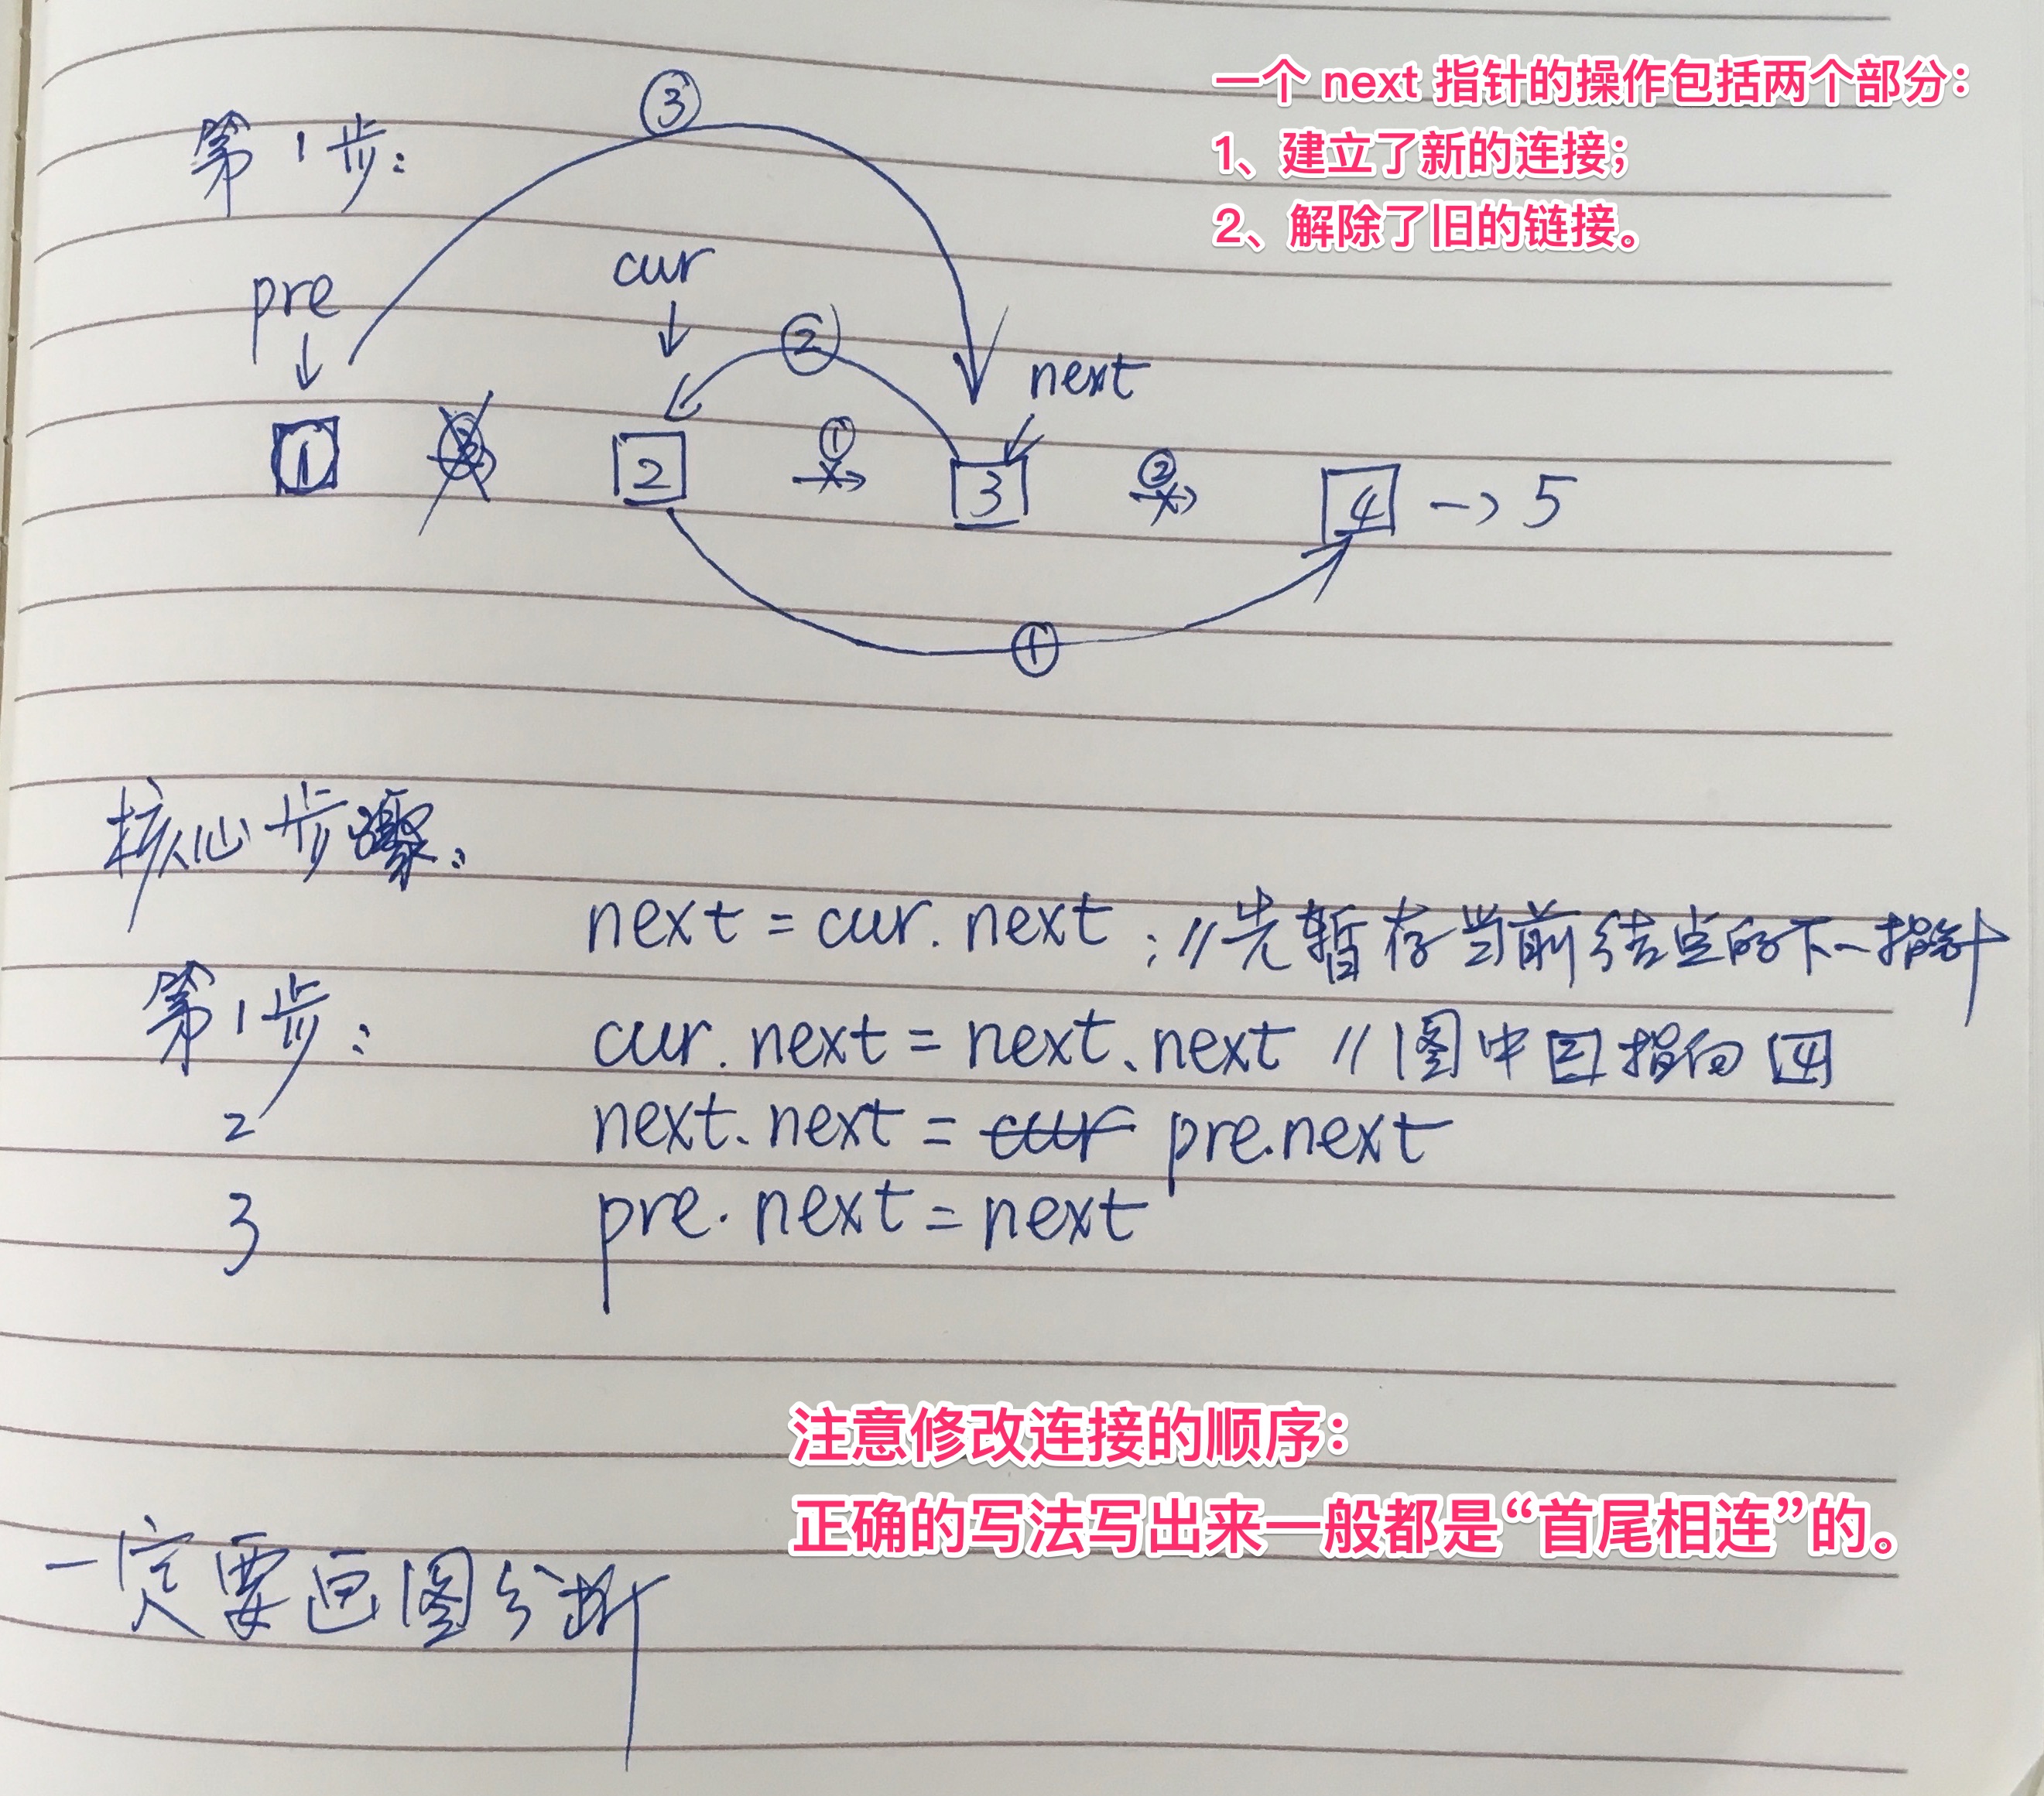 一个 next 指针的操作包括两个部分：
1、建立了新的连接；
2、解除了旧的链接。
第1步：
③
pre
cur
②
next
1
③
2
①
3
②
4 -> 5
①
核心步骤：
next = cur.next ; //先暂存当前结点的下一指针
第1步： cur.next = next.next //图中2指向4
2 next.next = cur pre.next
3 pre.next = next
注意修改连接的顺序：
正确的写法写出来一般都是“首尾相连”的。
一定要画图分析